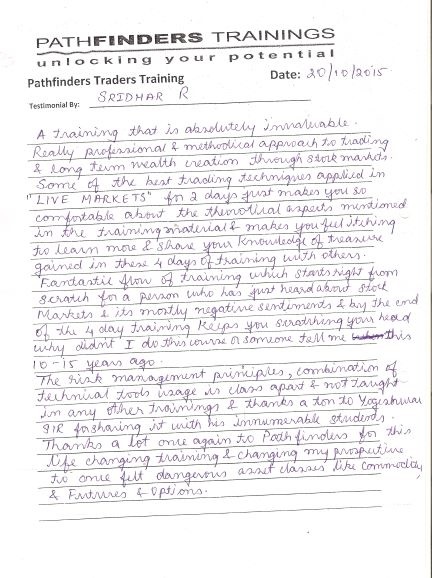 PATHFINDERS TRAININGS
unlocking your potential
Pathfinders Traders Training
Date: 20/10/2015
Testimonial By: SRIDHAR R
A training that is absolutely invaluable.
Really professional & methodical approach to trading
& long term wealth creation through stock markets.
Some of the best trading techniques applied in
"LIVE MARKETS" for 2 days just makes you so
comfortable about the theoretical aspects mentioned
in the training material & makes you feel itching
to learn more & share your knowledge of treasure
gained in these 4 days of training with others.
Fantastic flow of training which starts right from
scratch for a person who has just heard about stock
Markets & its mostly negative sentiments & by the end
of the 4 day training keeps you scratching your head
why didn't I do this course or someone tell me this
10-15 years ago.
The risk management principles, combination of
technical tools usage is class apart & not taught
in any other trainings & thanks a ton to Yogeshwar
SIR for sharing it with his innumerable students.
Thanks a lot once again to Pathfinders for this
life changing training & changing my prospective
to once felt dangerous asset classes like commodity
& Futures & Options.